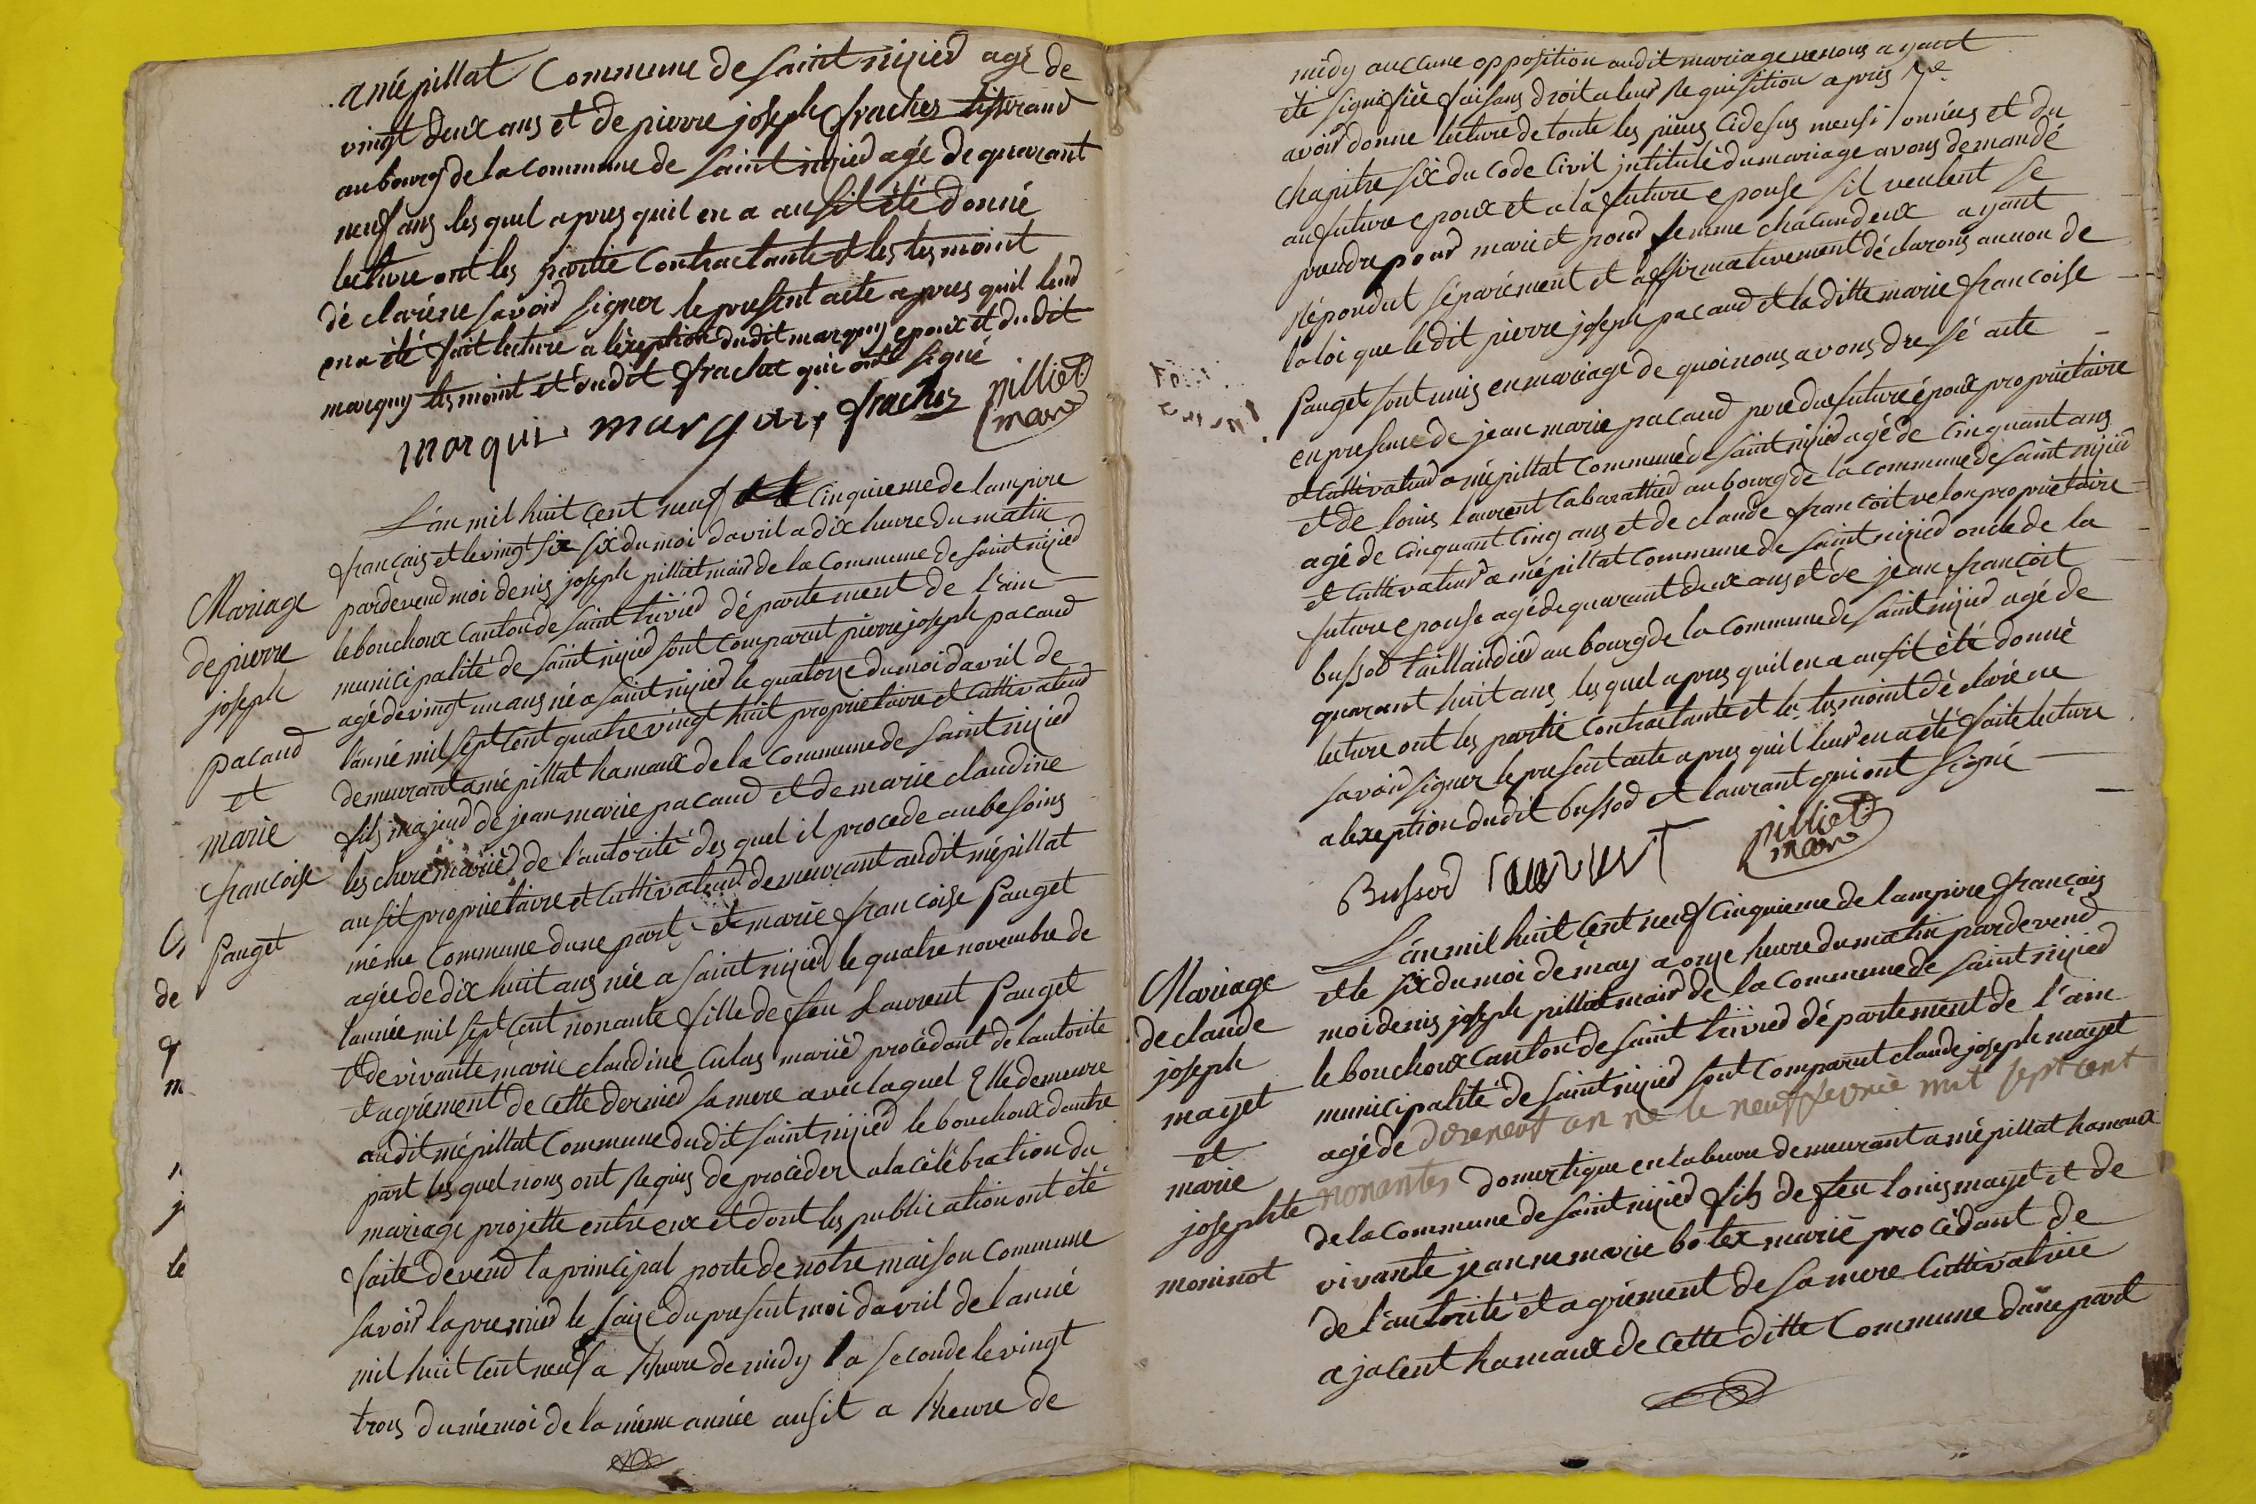 a mépillat Commune de saint nizier agé de
vingt deux ans et de pierre joseph frachez tisserand
au bourg de la commune de saint nizier agé de quarant
neuf ans les quel apres quil en a ausit été donné
lecture ont les partie Contractante et les tesmoint
dé claré ne savoir signer le present acte apres quil leur
en a été fait lecture a lexeption dudit marguy epoux et dudit
marguy tesmoint et dudit frachet qui ont signé
marqui marqui frachez pilliet
mair
L'an mil huit cent neuf cinquieme de lampire
français et le vingt six six du moi davril a dix heure du matin
pardevend moi denis joseph pilliet mair de la Commune de saint nizied
le bouchoux canton de saint trivied département de l'ain
municipalité de saint nizied sont comparut pierre joseph pacaud
agé de vingt un ans né a saint nizied le quatorze du moi davril de
l'anné mil sept cent quatre vingt huit proprietaire et cultivateur
demeurant a mé pillat hamaux de la Commune de saint nizied
fils majeur de jean marie pacaud et de marie claudine
les chere maried de l'autorité des quel il procede au besoins
ausit proprietaire et Cultivateur demeurant audit mépillat
méme Commune dune part et marie francoise pauget
agée de dix huit ans née a saint nizied le quatre novembre de
lannée mil sept cent nonante fille de feu Laurent pauget
et de vivante marie claudine Culas marièr procédant de lautorite
et agrément de cette dernier sa mere avec laquel Elle demeure
audit mépillat Commune dudit saint nizied le bouchoux dautre
part les quel nous ont Requis de procéder a la célébration du
mariage projette entre eux et dont les publication ont été
faite devend la principal porte de notre maison commune
savoir la premier le saize du present moi davril de lanné
mil huit cent neuf a lheure de midy la seconde le vingt
trois du mémoi de la méme année ausit a lheure de
Mariage
de pierre
joseph
pacaud
et
marie
francoise
pauget
de
m
le
midy aucune opposition audit mariage ne nous ayant
été signifiée faisans droit a leur Requisition apris
avoir donne lecture de toute les pieces cidesus mensionnées et du
Chapitre six du code Civil jntitulé du mariage avons demandé
au future epoux et a la future epouse sil veulent se
prendre pour mari et pour femme chacun deux ayant
Répondut séparément et affirmativement déclarons au non de
la loi que ledit pierre joseph pacaud et la ditte marie francoise
pauget sont unis en mariage de quoi nous avons dressé acte
en presence de jean marie pacaud pere du future époux proprietaire
et Cultivateur a mépillat Commune de saint nizied agé de cinquant ans
et de louis laurent Cabarattied au bourg de la commune de saint nizied
agé de cinquant cinq ans et de claude francoit velon proprietaire
et Cultivateur a mépillat commune de saint nizied oncle de la
future epouse agé de quarant deux ans et de jean françoit
bussod taillandier au bourg de la Commune de saint nizied agé de
quarant huit ans les quel apres quil en a ausit été donné
lecture ont les partie Contractante et les tesmoint dé claré ne
savoir signer le present acte apres quil leur en a été faite lecture
a lexeption dudit bussod et laurant qui ont signé
Bussod laurent pilliet
mair
L'an mil huit cent neuf cinquieme de lampire français
et le six du moi de may a onze heure du matin pardevend
moi denis joseph pilliet mair de la commune de saint nizied
le bouchoux Canton de saint trivied département de l'ain
municipalité de saint nizied sont comparut claude joseph mayet
agé de dixneuf an ne le neuf fevrié mil sept cent
nonantes domestique en labeure demeurant a mé pillat hamaux
de la commune de saint nizied fils de feu louis mayet et de
vivante jeanne marie botex marié procédant de
de l'autorité et agrément de sa mere Cultivatrice
a jacent hamaux de cette ditte Commune dune part
Mariage
de claude
joseph
mayet
et
marie
josephte
moninot